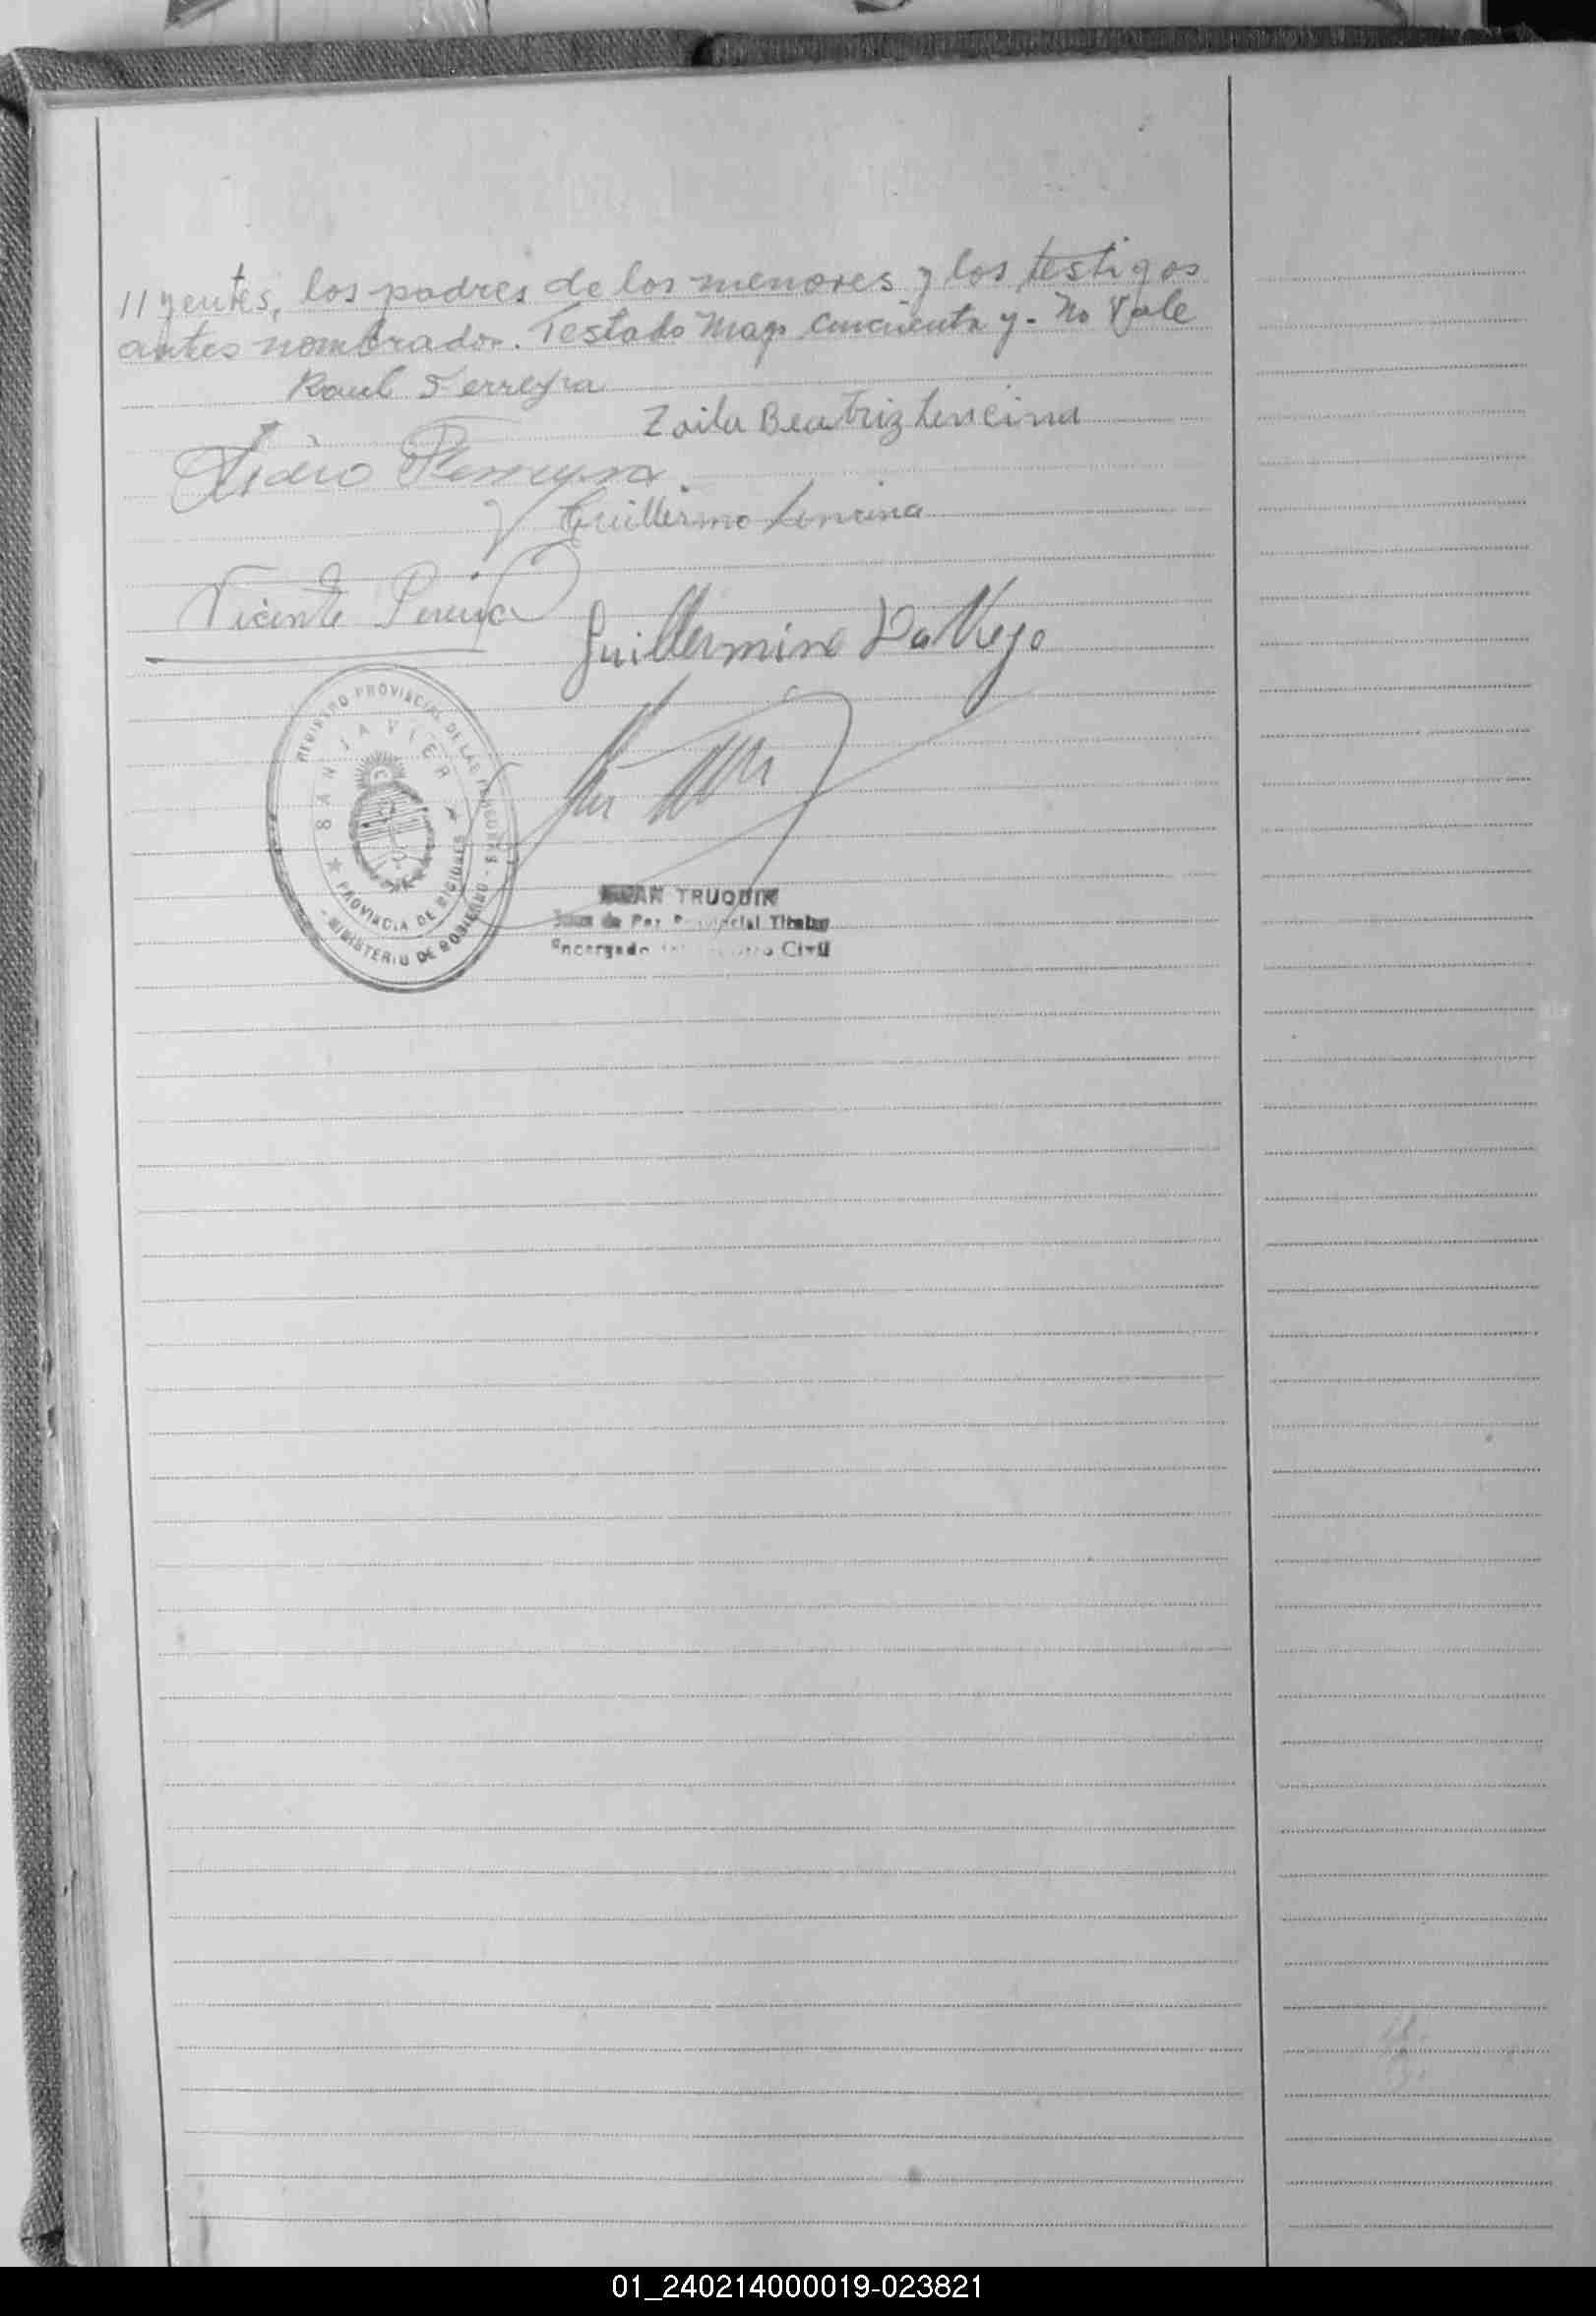 //yentes, los padres de los menores y los testigos
antes nombrados. Testado Mayo cincuenta y - No Vale
Raul Ferreyra
Zaila Beatriz Lencina
Isidro Ferreyra
Guillermo Lencina
Vicente Pereyra
Guillermina Da Vega
REGISTRO PROVINCIAL DE LAS PERSONAS
SAN JAVIER
PROVINCIA DE MISIONES
- MINISTERIO DE GOBIERNO -
JUAN TRUQUIN
Juez de Paz Provincial Titular
Encargado Civil
01_240214000019-023821